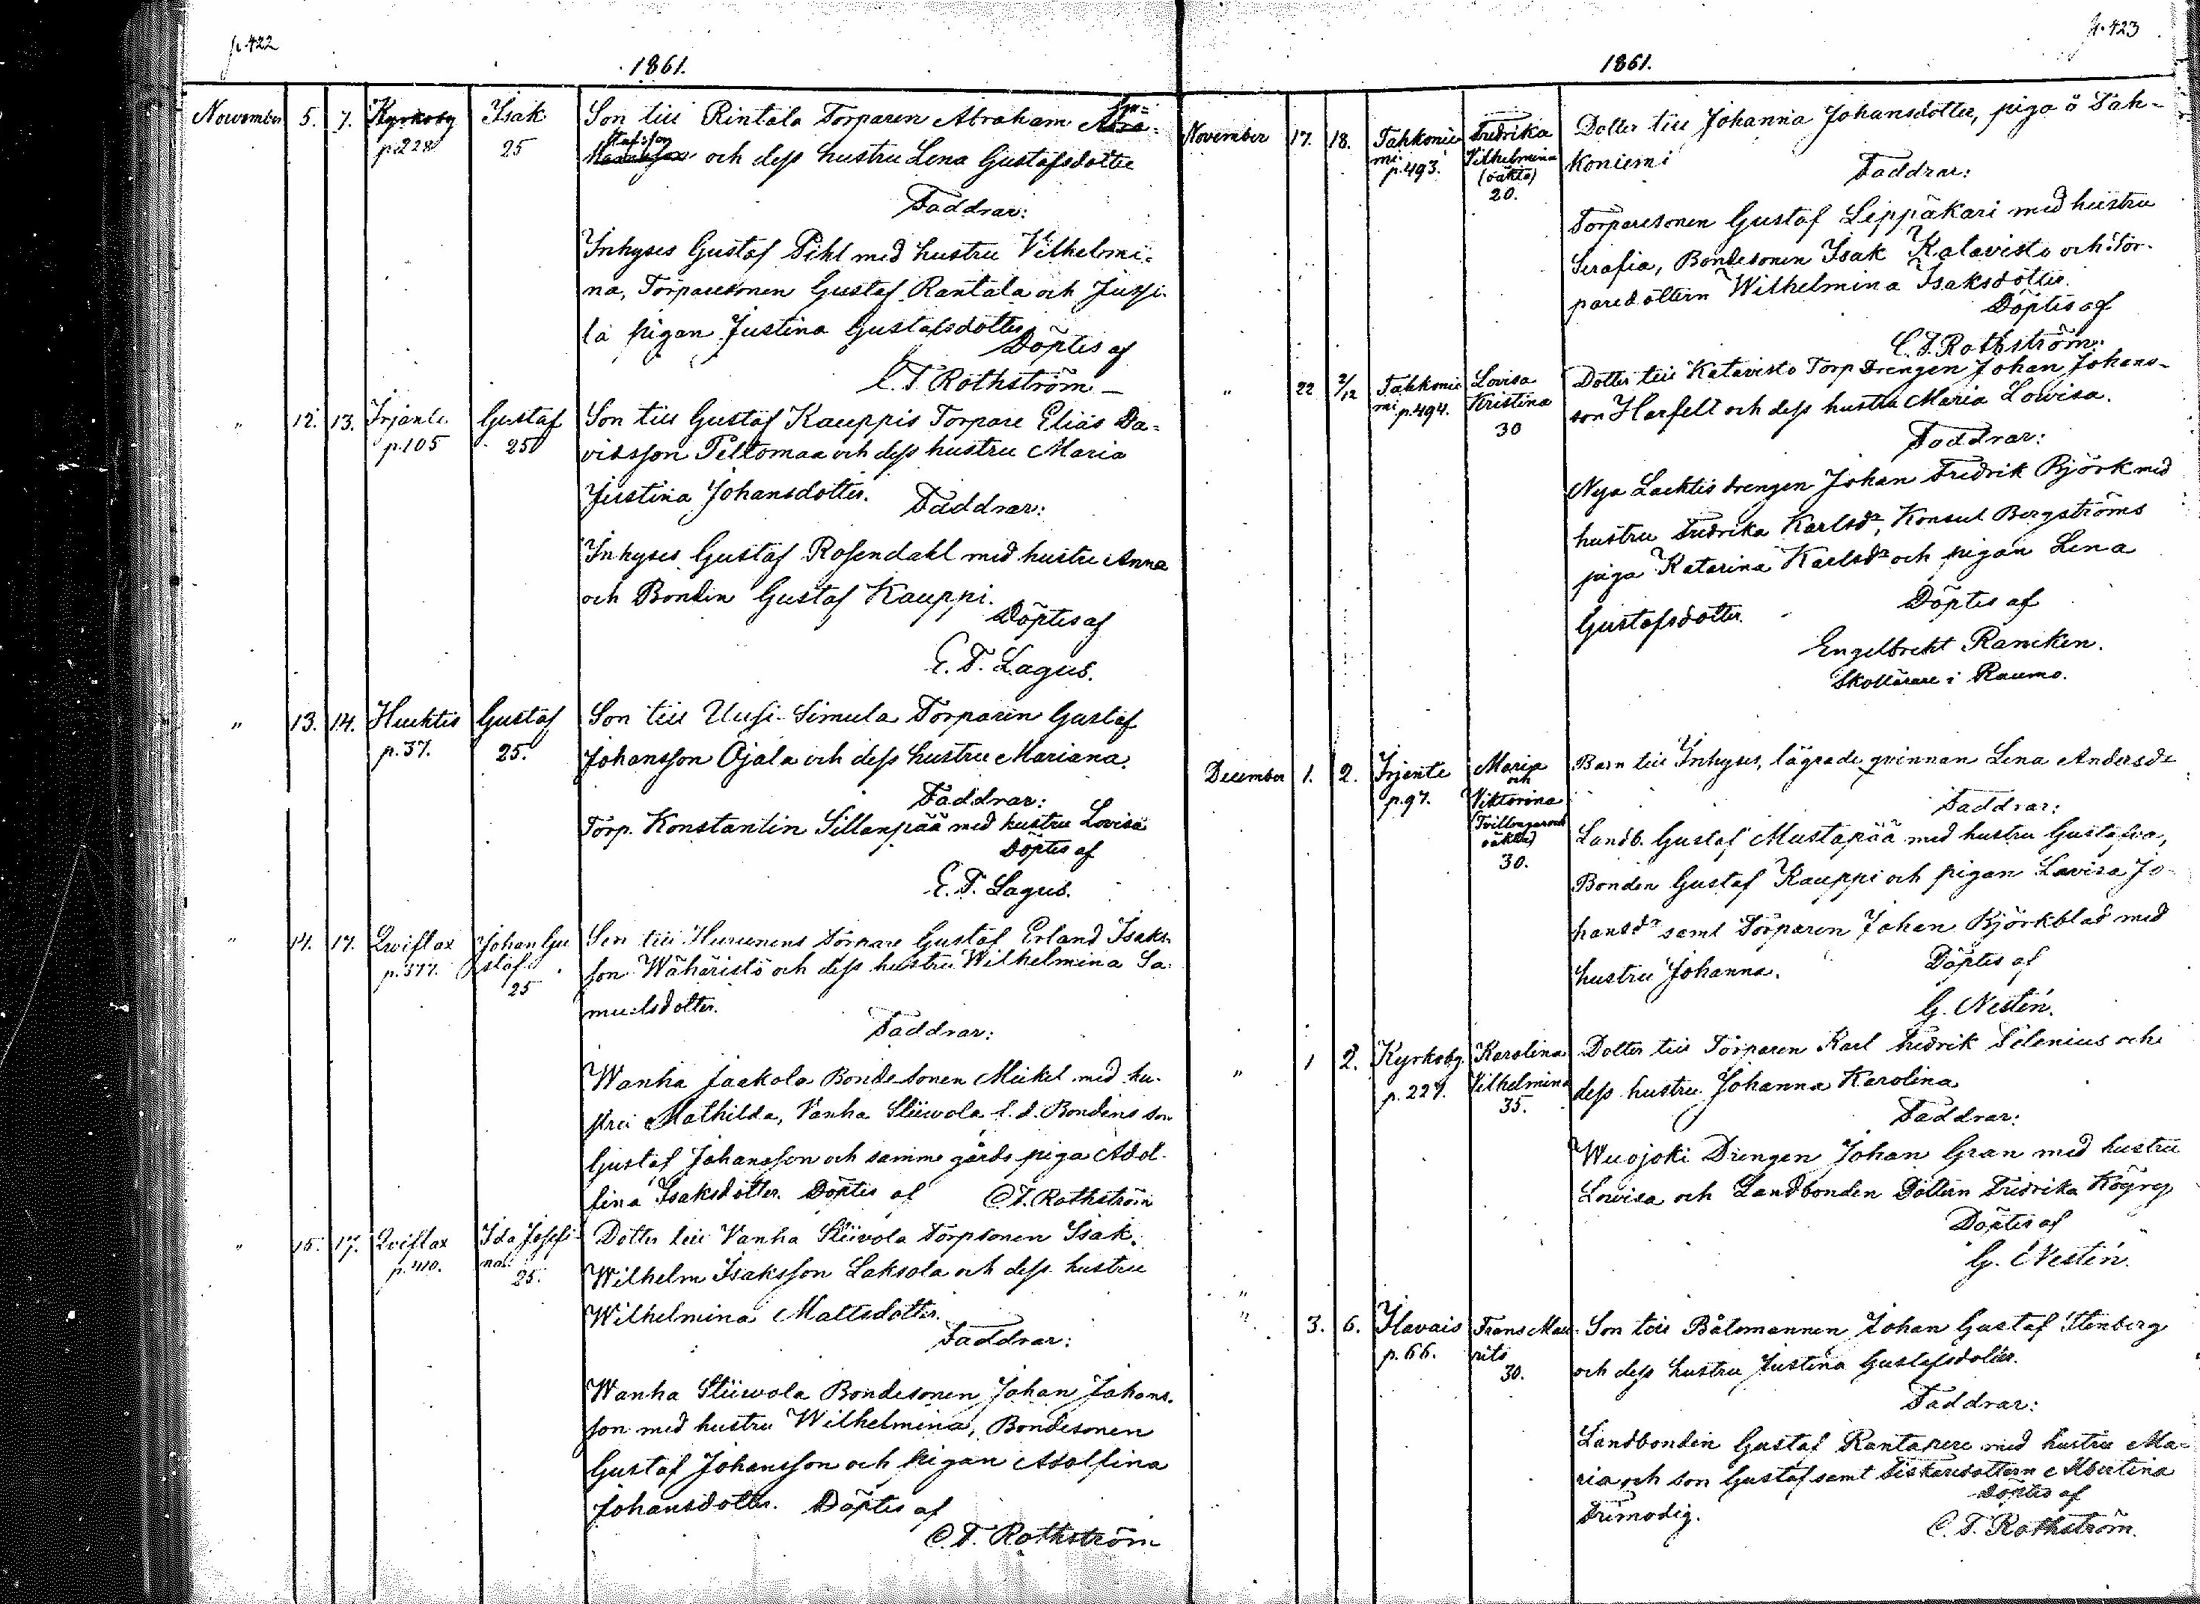 p.422
1861.
November 5. 7. Kyrkoby Isak Son till Rintala Torparen Abraham Abra-
p.228 25 och dess hustru Lena Gustafsdotter
Faddrar:
Inhyses Gustaf Pihl med hustru Vilhelmi-
na, Torparesonen Gustaf Rantala och Jussi-
la pigan Justina Gustafsdotter
Döptes af
C. F. Rothström
" 12. 13. Irjante Gustaf Son till Gustaf Kauppis Torpare Elias Da-
p.105 25 vidsson Peltomaa och dess hustru Maria
Justina Johansdotter. Faddrar:
Inhyses Gustaf Rosendahl med hustru Anna
och Bonden Gustaf Kauppi.
Döptes af
E. F. Lagus.
" 13. 14. Hucktis Gustaf Son till Uusi-Simula Torparen Gustaf
p.37. 25. Johansson Ojala och dess hustru Mariana.
Faddrar:
Torp. Konstantin Sillanpää med hustru Lovisa
Döptes af
E. F. Lagus.
" 14. 17. Qviflax Johan Gu Son till Hurunens Torpare Gustaf Erland Isaks-
p.377. staf. son Wähäristö och dess hustru Wilhelmina Sa-
25 muelsdotter.
Faddrar:
Wanha Jaakola Bondesonen Mickel med hu-
stru Mathilda, Vanha Stiwola f. d. Bondens son
Gustaf Johansson och samma gårds piga Adol-
fina Isaksdotter. Döptes af C. F. Rothström
" 15. 17. Qviflax Ida Josefi- Dotter till Vanha Stiwola Torpsonen Isak
p.410. na. Wilhelm Isaksson Laksola och dess hustru
25. Wilhelmina Mattsdotter.
Faddrar:
Wanha Stiwola Bondesonen Johan Johans-
son med hustru Wilhelmina, Bondesonen
Gustaf Johansson och pigan Adolfina
Johansdotter. Döptes af
C. F. Rothström
p.423
1861.
November 17. 18. Tahkonie- Fredrika Dotter till Johanna Johansdotter, piga å Tah-
mi Vilhelmina koniemi
p.493. (oäkta) Faddrar:
20.
Torparesonen Gustaf Leppäkari med hustru
Serafia, Bondesonen Isak Katavisto och Tor-
paredottern Wilhelmina Isaksdotter.
Döptes af
C. F. Rothström.
" 22 2/12 Tahkonie Lovisa Dotter till Katavisto Torp Drengen Johan Johans-
mi p.494. Kristina son Harfelt och dess hustru Maria Lovisa.
30
Faddrar:
Nya Lacktis drengen Johan Fredrik Björk med
hustru Fredrika Karlsdr, Konsul Bergströms
piga Katarina Karlsdr och pigan Lena
Gustafsdotter. Döptes af
Engelbrekt Rancken.
Skollärare i Raumo.
December 1. 2. Irjente Maria Barn till Inhyses, lägrade qvinnan Lena Andersdr
p.97. och
Viktorina Faddrar:
(Tvillingar och Landb. Gustaf Mustapää med hustru Gustafva,
oäkta)
30. Bonden Gustaf Kauppi och pigan Lovisa Jo-
hansdr samt Torparen Johan Björkblad med
hustru Johanna. Döptes af
G. Nestén.
" 1 2. Kyrkoby Karolina Dotter till Torparen Karl Fredrik Selenius och
p.227. Vilhelmina dess hustru Johanna Karolina
35.
Faddrar:
Wuojoki Drengen Johan Gran med hustru
Lovisa och Landbonden Dottern Fredrika
Döptes af
G. Nestén.
"
" 3. 6. Ilavais Frans Mau- Son till Båtsmannen Johan Gustaf Stenberg
p.66. rits och dess hustru Justina Gustafsdotter.
30.
Faddrar:
Landbonden Gustaf Rantapere med hustru Ma-
ria och son Gustaf samt Fiskaredottern Albertina
Frimodig. Döptes af
C. F. Rothström.